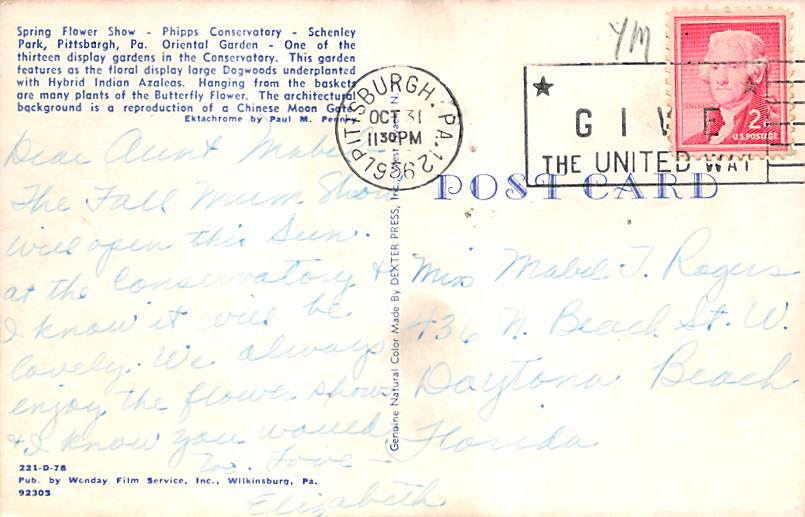 Spring Flower Show - Phipps Conservatory - Schenley
Park, Pittsburgh, Pa. Oriental Garden - One of the
thirteen display gardens in the Conservatory. This garden
features as the floral display large Dogwoods underplanted
with Hybrid Indian Azaleas. Hanging from the baskets
are many plants of the Butterfly Flower. The architectural
background is a reproduction of a Chinese Moon Gate.
Ektachrome by Paul M. Perry
Dear Aunt Mabel
The Fall Mum Show
will open this Sun.
at the Conservatory &
I know it will be
lovely. We always
enjoy the flower shows
& I know you would
too. Love -
Elizabeth
221-D-78
Pub. by Wonday Film Service, Inc., Wilkinsburg, Pa.
92303
Genuine Natural Color Made By DEXTER PRESS, Inc., West Nyack, N.
PITTSBURGH, PA. 12
OCT 31
11 30 PM
1962
YM
GIVE
THE UNITED WAY
2¢
U.S. POSTAGE
POST CARD
Miss Mabel T. Rogers
736 N. Beach St. W.
Daytona Beach
Florida